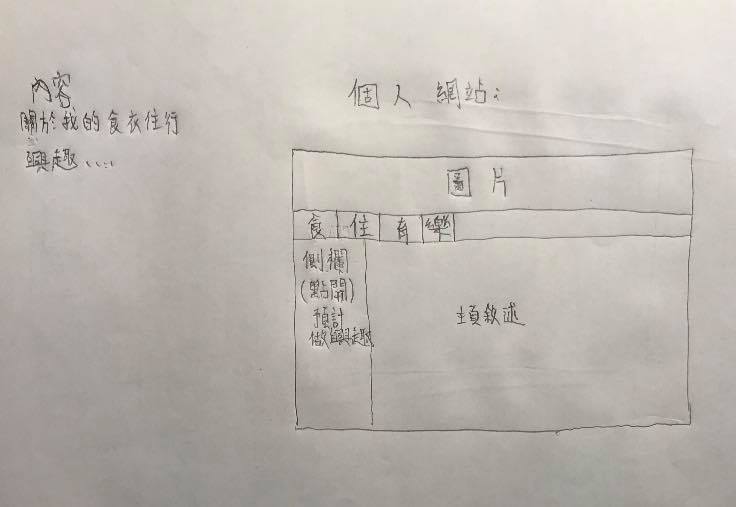 內容
關於我的食衣住行
興趣....
個人網站:
圖片
食 住 有 樂
側欄
(點開)
預計
做興趣
主頁敘述